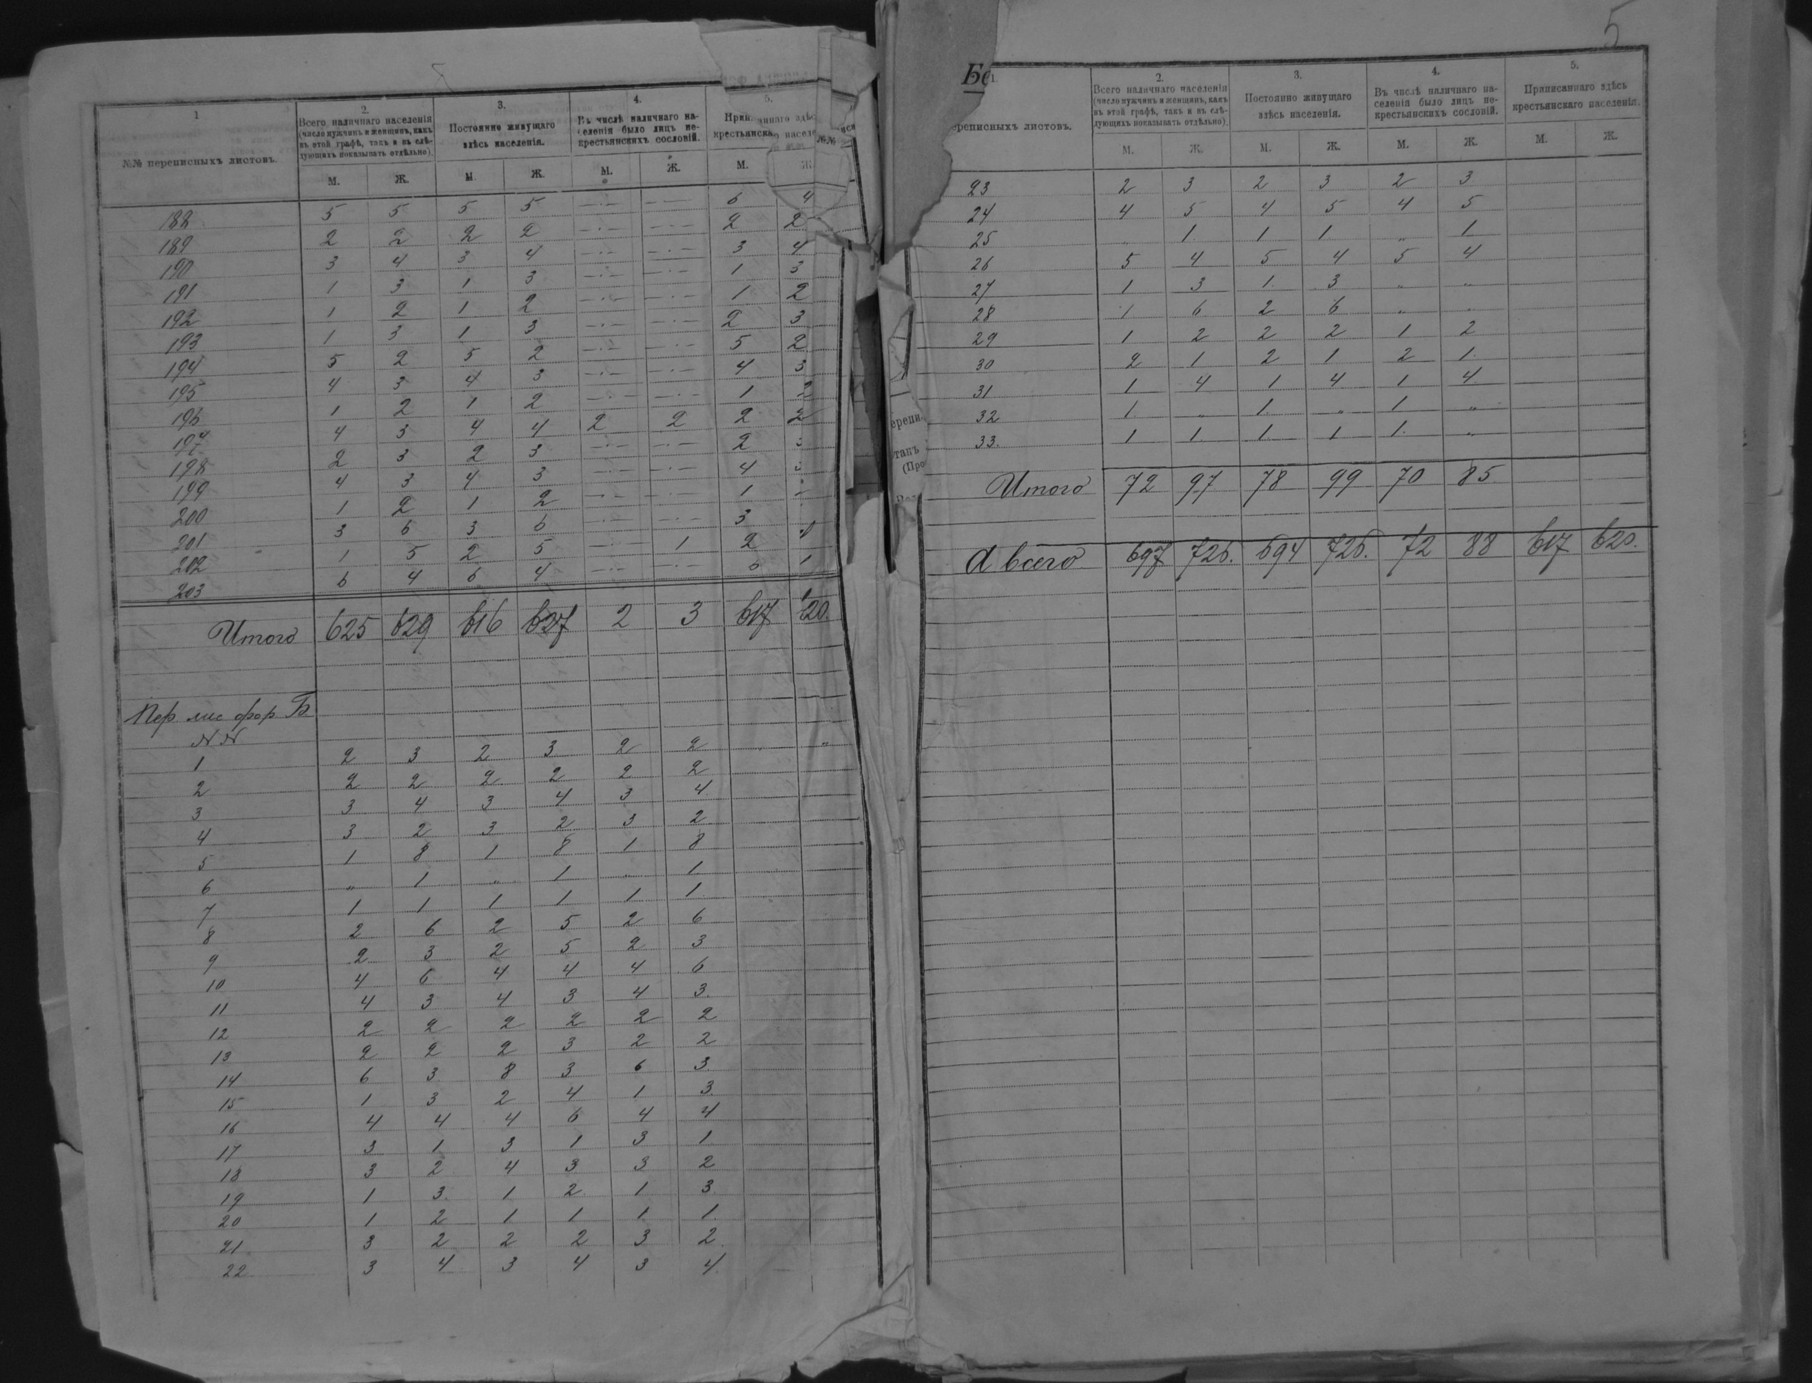 1
2.
3.
4.
5.
№№ переписныхъ листовъ.
Всего наличнаго населенія (число мужчинъ и женщинъ, какъ въ этой графѣ, такъ и въ слѣдующихъ показывать отдѣльно)
Постоянно живущаго здѣсь населенія.
Въ числѣ наличнаго населенія было лицъ некрестьянскихъ сословій.
М. Ж. М. Ж. М. Ж. М. Ж.
188 5 5 5 5 6 4
189 2 2 2 2 2 2
190 3 4 3 4 3 4
191 1 3 1 3 1 3
192 1 2 1 2 1 2
193 1 3 1 3 2 3
194 5 2 5 2 5 2
195 4 3 4 3 4 3
196 1 2 1 2 1
197 4 3 4 4 2 2 2 2
198 2 3 2 3 2
199 4 3 4 3 4
200 1 2 1 2 1
201 3 6 3 6 3
202 1 5 2 5 1 2 4
203 6 4 6 4 1
Итого 625 629 616 627 2 3 617 620.
Пер лис фор Б
NN
1 2 3 2 3 2 2 „ „
2 2 2 2 2 2 2
3 3 4 3 4 3 4
4 3 2 3 2 3 2
5 1 8 1 8 1 8
6 „ 1 „ 1 „ 1
7 1 1 1 1 1 1
8 2 6 2 5 2 6
9 2 3 2 5 2 3
10 4 6 4 4 4 6
11 4 3 4 3 4 3
12 2 2 2 2 2 2
13 2 2 2 3 2 2
14 6 3 8 3 6 3
15 1 3 2 4 1 3
16 4 4 4 6 4 4
17 3 1 3 1 3 1
18 3 2 4 3 3 2
19 1 3 1 2 1 3
20 1 2 1 1 1 1
21 3 2 2 2 3 2
22 3 4 3 4 3 4
5
1.
2.
3.
4.
5.
переписныхъ листовъ.
Всего наличнаго населенія (число мужчинъ и женщинъ, какъ въ этой графѣ, такъ и въ слѣдующихъ показывать отдѣльно)
Постоянно живущаго здѣсь населенія.
Въ числѣ наличнаго населенія было лицъ некрестьянскихъ сословій.
Приписаннаго здѣсь крестьянскаго населенія.
М. Ж. М. Ж. М. Ж. М. Ж.
23 2 3 2 3 2 3
24 4 5 4 5 4 5
25 „ 1 1 1 „ 1
26 5 4 5 4 5 4
27 1 3 1 3 „ „
28 1 6 2 6 „ „
29 1 2 2 2 1 2
30 2 1 2 1 2 1
31 1 4 1 4 1 4
32 1 „ 1 „ 1 „
33. 1 1 1 1 1 „
Итого 72 97 78 99 70 85
А всего 697 726. 694 726. 72 88 617 620.